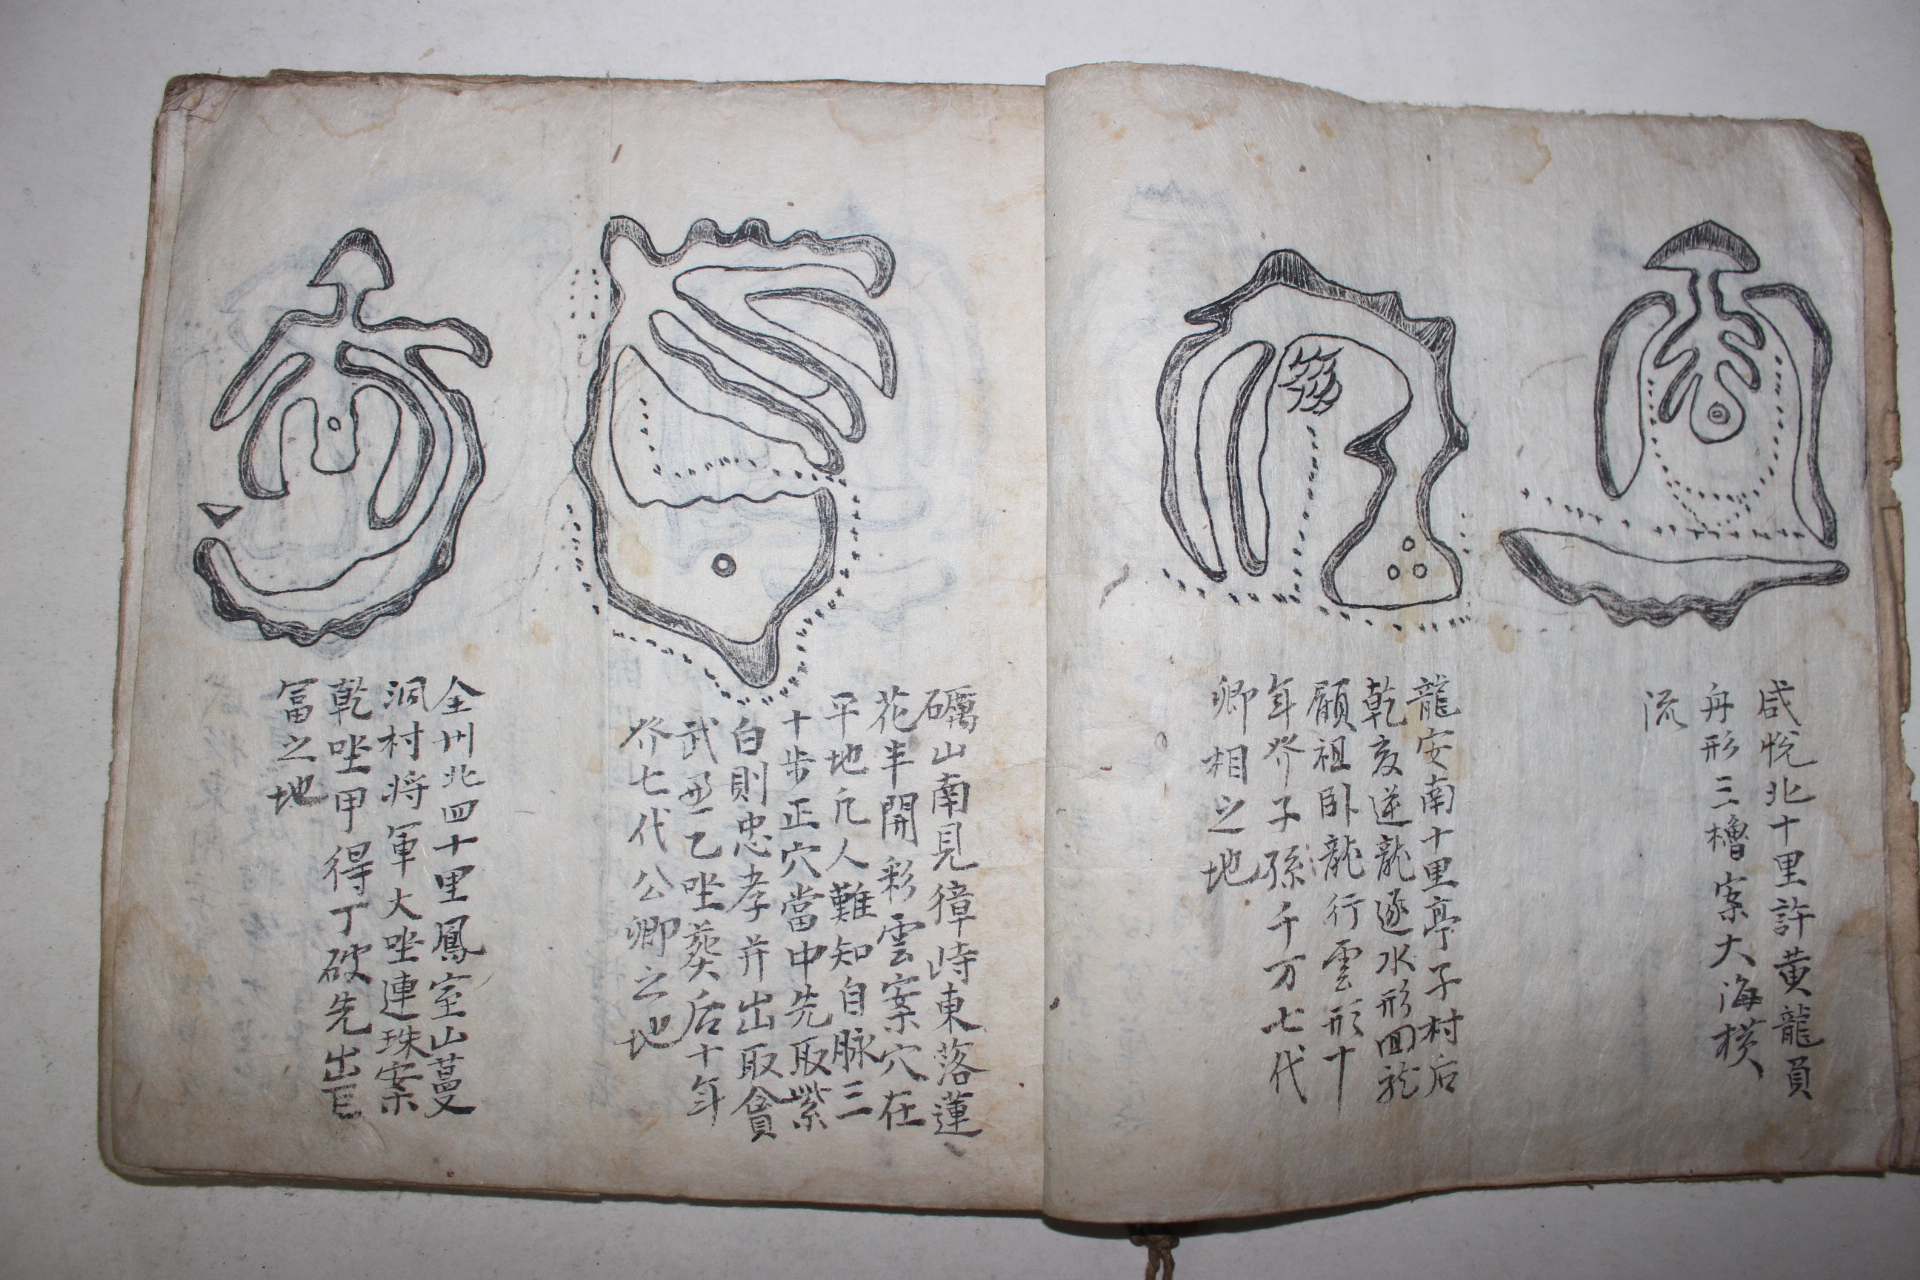 咸悅北十里許黃龍負
舟形三櫓案大海横
流
龍安南十里亭子村后
乾亥逆龍逐水形回龍
顧祖卧龍行雲形十
年發子孫千万七代
卿相之地
礪山南見獐峙東落蓮
花半開彩雲案穴在
平地凡人難知自脉三
十步正穴當中先取紫
白則忠孝并出取貪
武丑乙坐葬后十年
發七代公卿之地
全州北四十里鳳室山蔓
洞村將軍大坐連珠案
乾坐甲得丁破先出巨
冨之地